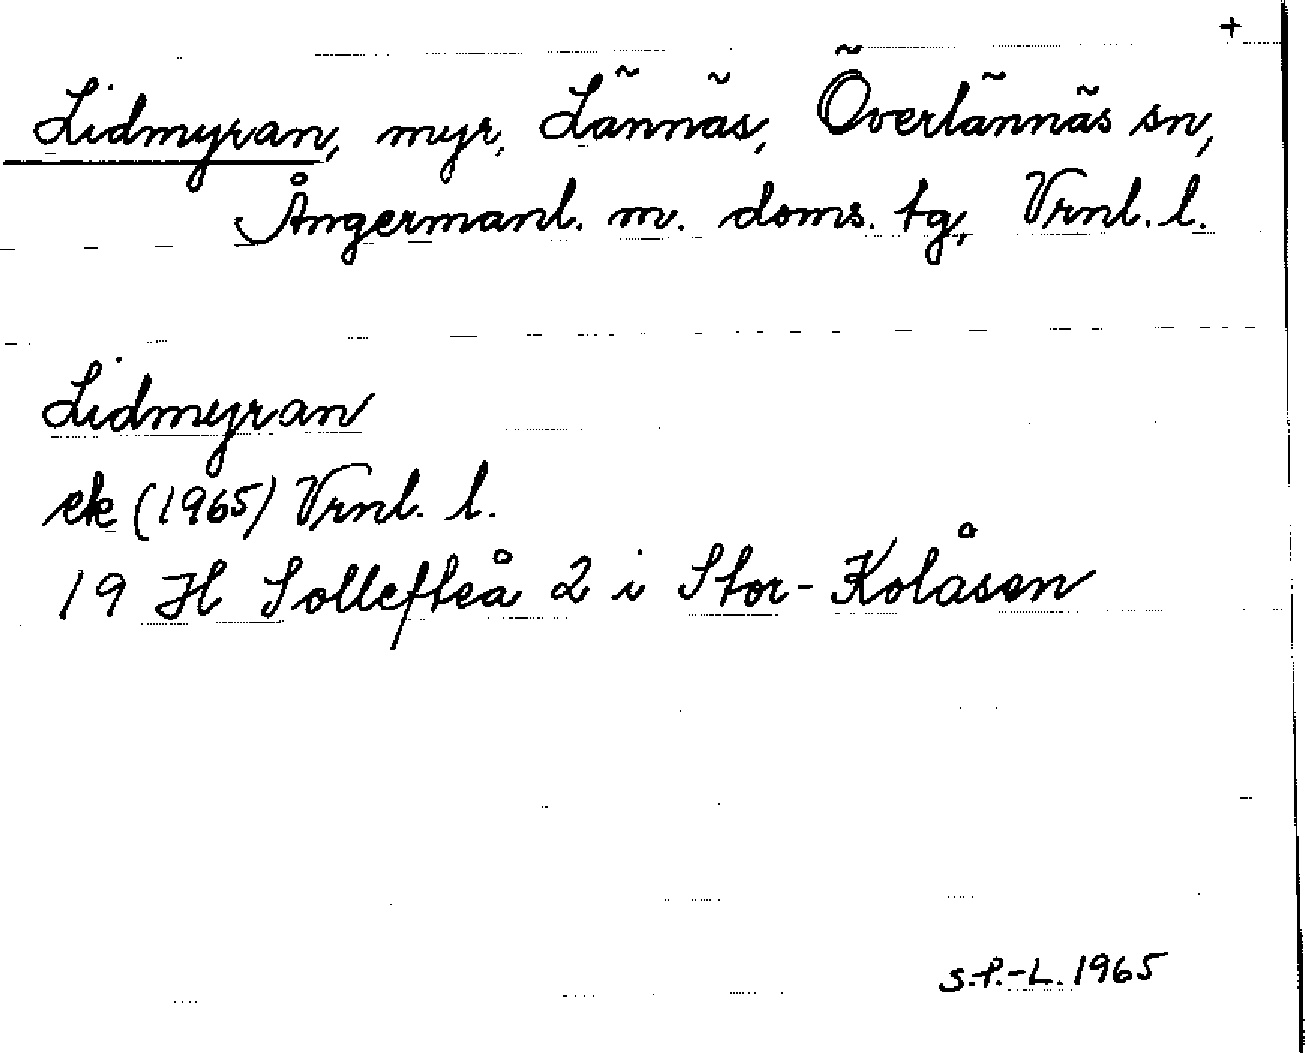 +
Lidmyran, myr, Lännäs, Överlännäs sn,
Ångermanl. m. doms. tg, Vrnl. l.
Lidmyran
ek (1965) Vrnl. l.
19 H Sollefteå 2 i Stor-Kolåsen
S.P.-L. 1965